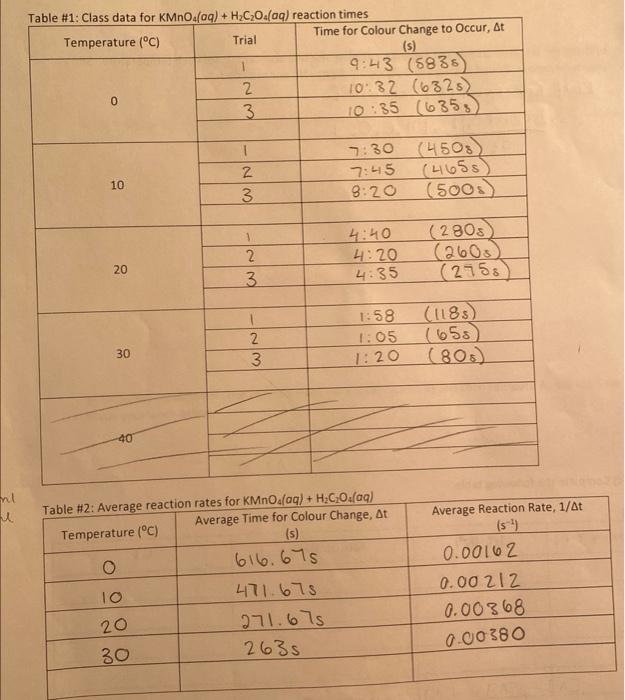 Table #1: Class data for KMnO₄(aq) + H₂C₂O₄(aq) reaction times
Temperature (°C) Trial Time for Colour Change to Occur, Δt (s)
0
1 9:43 (583s)
2 10:32 (632s)
3 10:35 (635s)
10
1 7:30 (450s)
2 7:45 (465s)
3 8:20 (500s)
20
1 4:40 (280s)
2 4:20 (260s)
3 4:35 (275s)
30
1 1:58 (118s)
2 1:05 (65s)
3 1:20 (80s)
40
Table #2: Average reaction rates for KMnO₄(aq) + H₂C₂O₄(aq)
Temperature (°C) Average Time for Colour Change, Δt (s) Average Reaction Rate, 1/Δt (s⁻¹)
0 616.67s 0.00162
10 471.67s 0.00212
20 271.67s 0.00368
30 263s 0.00380